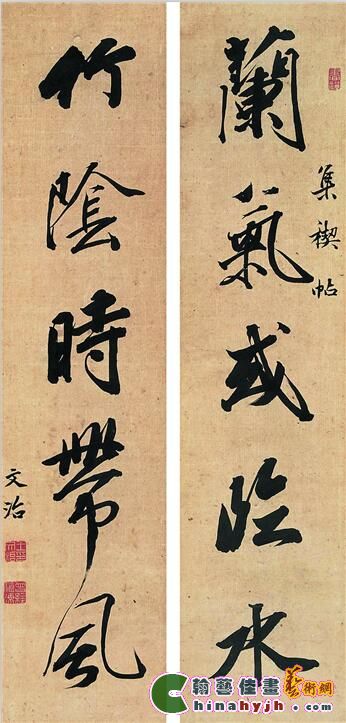 蘭氣或臨水
集禊帖
竹陰時帶風
文治
翰藝佳畫藝術網
hinahyjh.com